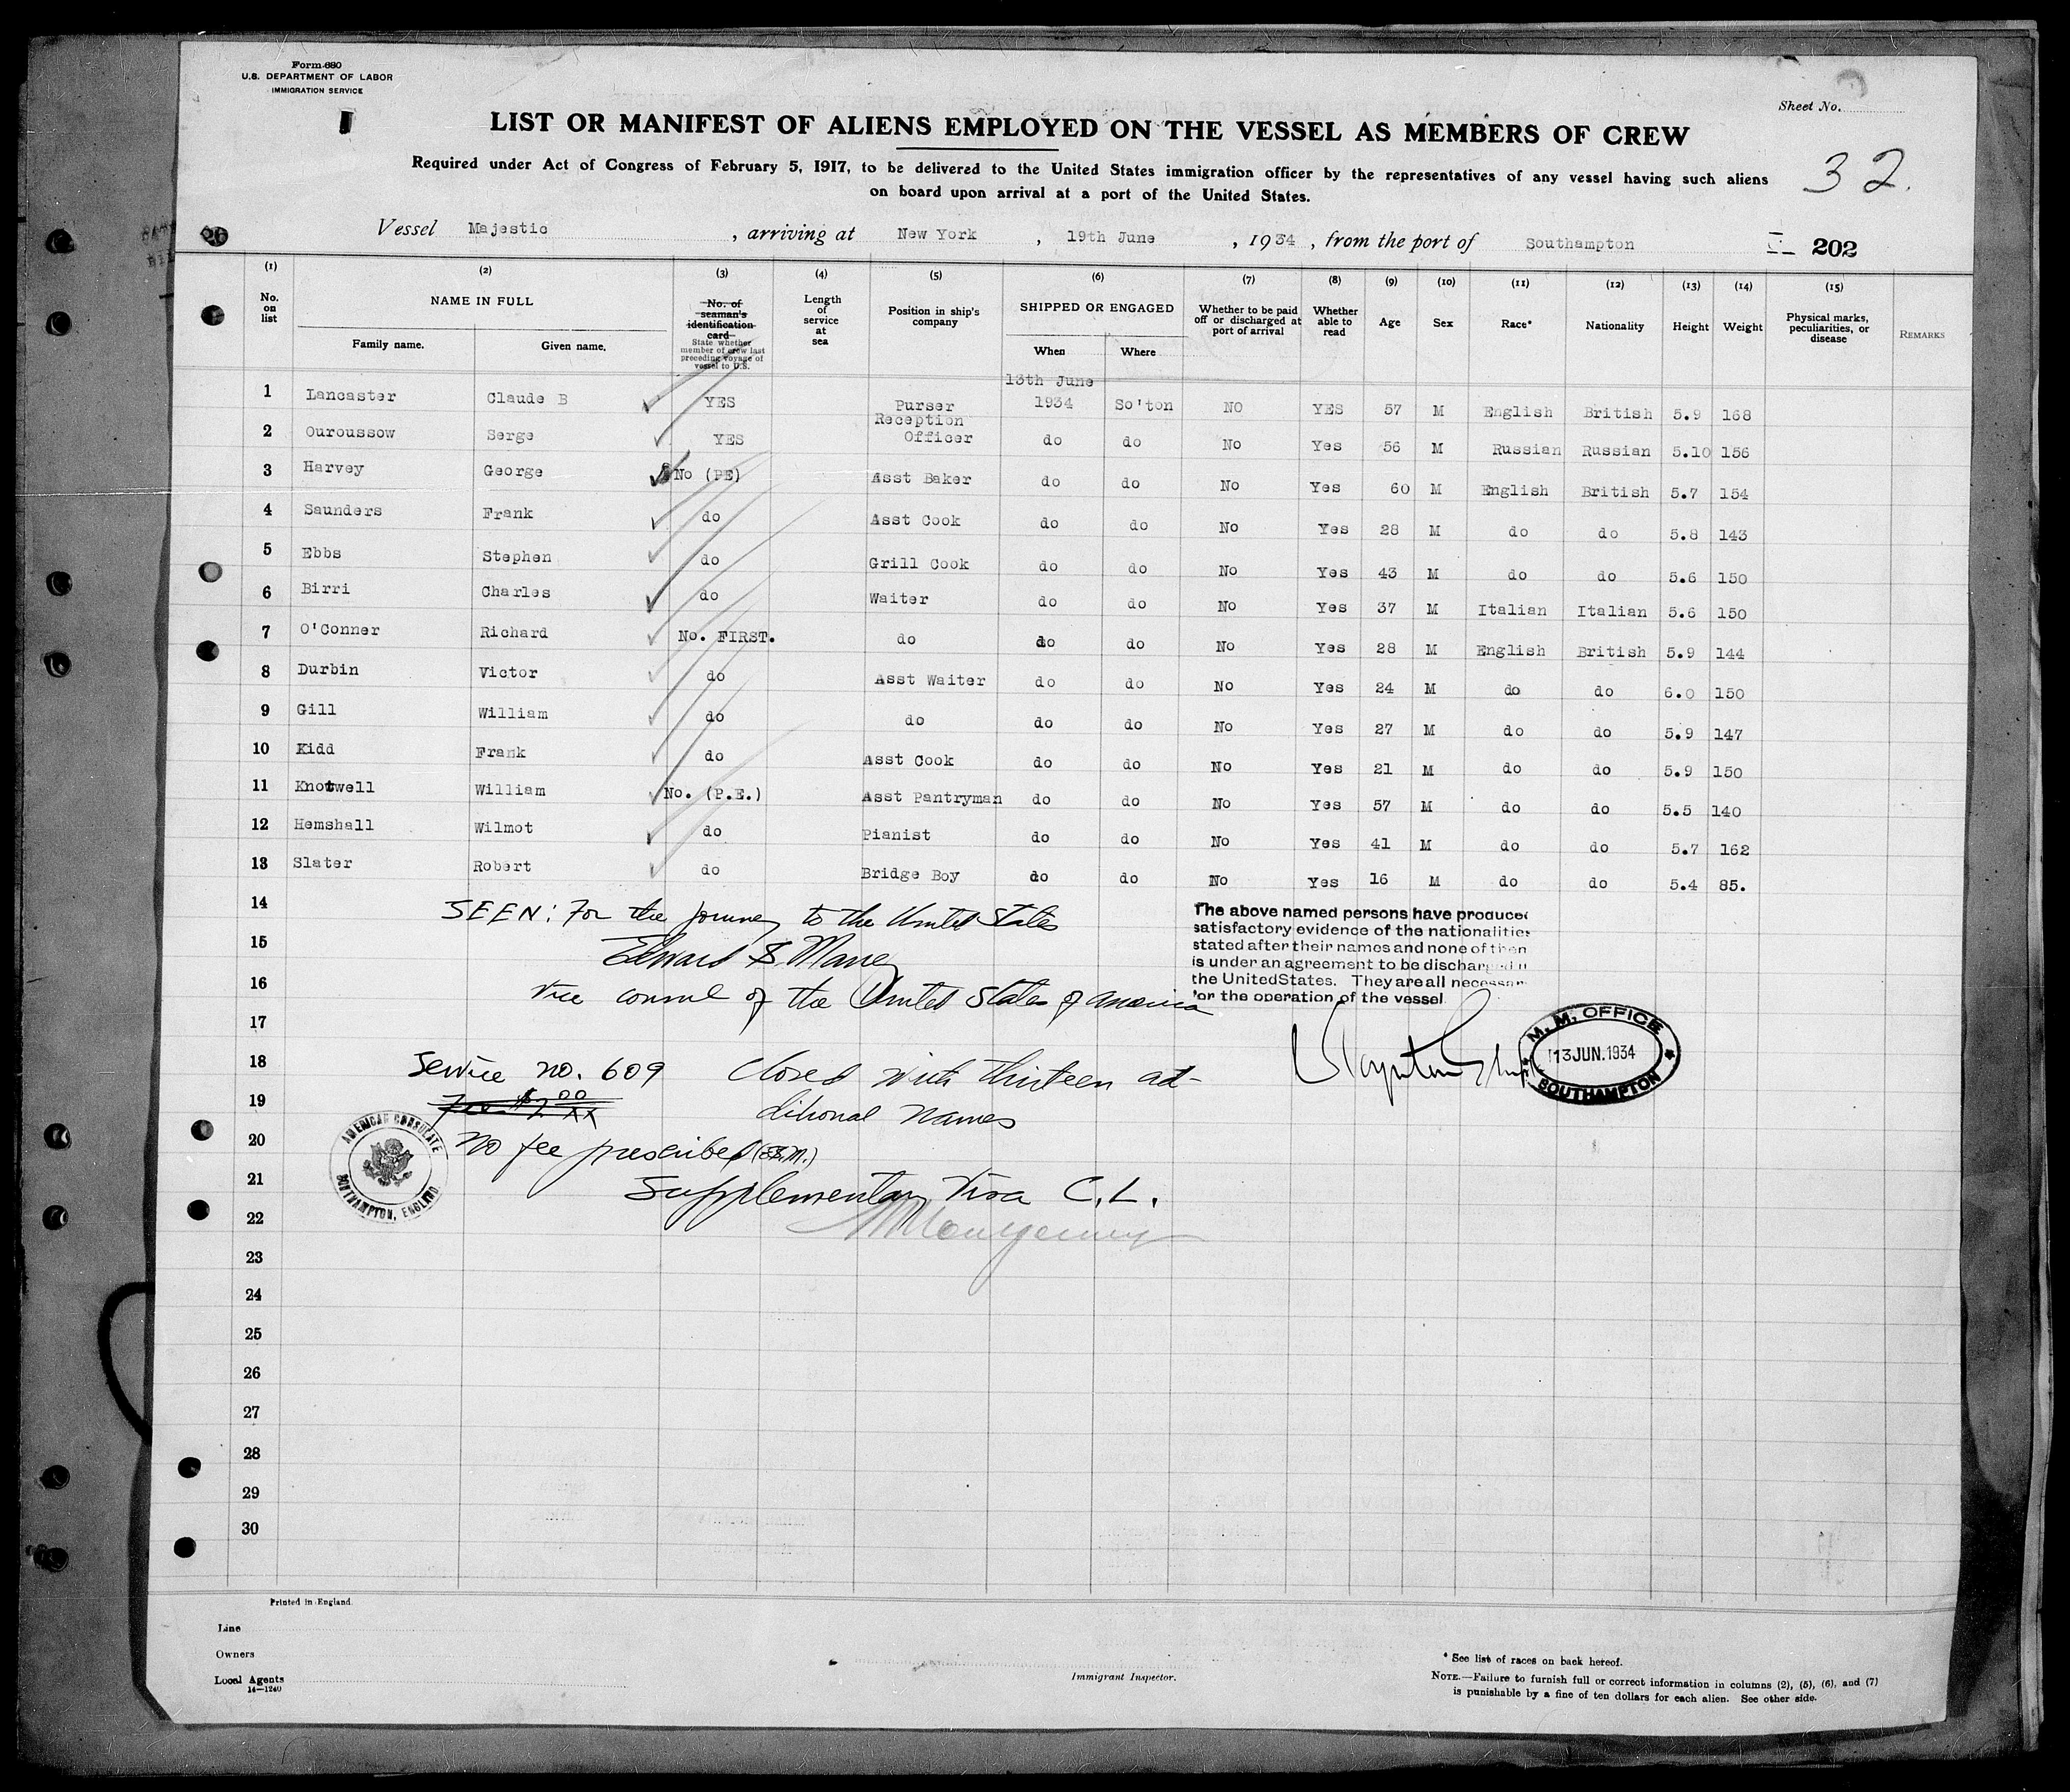 Form 680
U.S. DEPARTMENT OF LABOR
IMMIGRATION SERVICE
Sheet No.
LIST OR MANIFEST OF ALIENS EMPLOYED ON THE VESSEL AS MEMBERS OF CREW
Required under Act of Congress of February 5, 1917, to be delivered to the United States immigration officer by the representatives of any vessel having such aliens
on board upon arrival at a port of the United States.
32.
Vessel Majestic, arriving at New York, 19th June, 1934, from the port of Southampton
202
(1) (2) (3) (4) (5) (6) (7) (8) (9) (10) (11) (12) (13) (14) (15)
No. on list
NAME IN FULL
Family name. Given name.
No. of seaman's identification card
State whether member of crew last preceding voyage of vessel to U.S.
Length of service at sea
Position in ship's company
SHIPPED OR ENGAGED
When Where
Whether to be paid off or discharged at port of arrival
Whether able to read
Age
Sex
Race*
Nationality
Height
Weight
Physical marks, peculiarities, or disease
REMARKS
1 Lancaster Claude B YES Purser 13th June 1934 So'ton NO YES 57 M English British 5.9 168
2 Ouroussow Serge YES Reception Officer do do No Yes 56 M Russian Russian 5.10 156
3 Harvey George No (PE) Asst Baker do do No Yes 60 M English British 5.7 154
4 Saunders Frank do Asst Cook do do No Yes 28 M do do 5.8 143
5 Ebbs Stephen do Grill Cook do do No Yes 43 M do do 5.6 150
6 Birri Charles do Waiter do do No Yes 37 M Italian Italian 5.6 150
7 O'Conner Richard No. FIRST. do do do No Yes 28 M English British 5.9 144
8 Durbin Victor do Asst Waiter do do No Yes 24 M do do 6.0 150
9 Gill William do do do do No Yes 27 M do do 5.9 147
10 Kidd Frank do Asst Cook do do No Yes 21 M do do 5.9 150
11 Knotwell William No. (P.E.) Asst Pantryman do do No Yes 57 M do do 5.5 140
12 Hemshall Wilmot do Pianist do do No Yes 41 M do do 5.7 162
13 Slater Robert do Bridge Boy do do No Yes 16 M do do 5.4 85.
14
15
16
17
18
19
20
21
22
23
24
25
26
27
28
29
30
SEEN: For the journey to the United States
Edward S. Maney
Vice consul of the United States of America
The above named persons have produced
satisfactory evidence of the nationalities
stated after their names and none of them
is under an agreement to be discharged
the United States. They are all necessary
for the operation of the vessel
M.M. OFFICE
13 JUN. 1934
SOUTHAMPTON
Service no. 609
Closed with thirteen ad-
ditional names
Fee $2.00
No fee prescribed (E.S.M.)
AMERICAN CONSULATE
SOUTHAMPTON, ENGLAND.
Supplementary Visa C.L.
Montgomery
Printed in England.
Line
Owners
Local Agents
14—1240
Immigrant Inspector.
* See list of races on back hereof.
NOTE.—Failure to furnish full or correct information in columns (2), (5), (6), and (7)
is punishable by a fine of ten dollars for each alien. See other side.